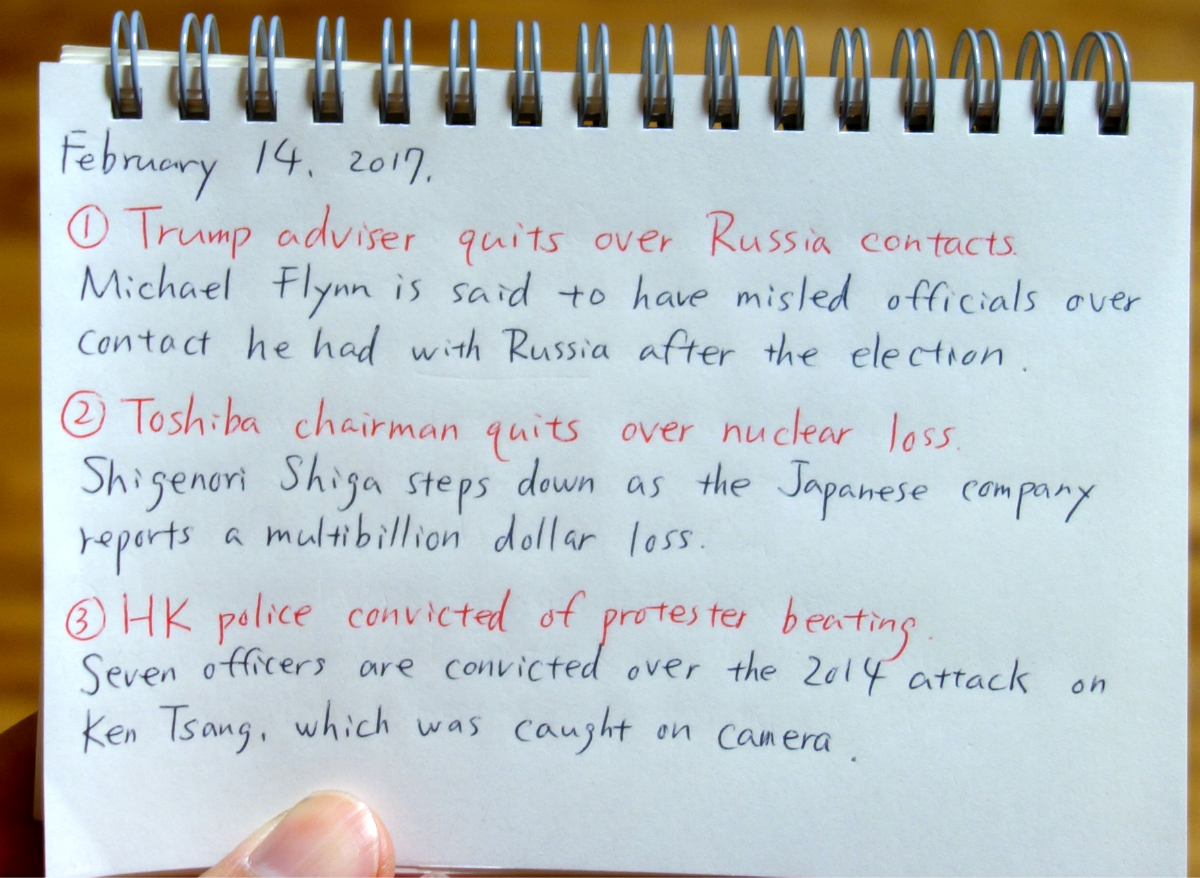 February 14. 2017.
① Trump adviser quits over Russia contacts.
Michael Flynn is said to have misled officials over
contact he had with Russia after the election.
② Toshiba chairman quits over nuclear loss.
Shigenori Shiga steps down as the Japanese company
reports a multibillion dollar loss.
③ HK police convicted of protester beating.
Seven officers are convicted over the 2014 attack on
Ken Tsang, which was caught on camera.